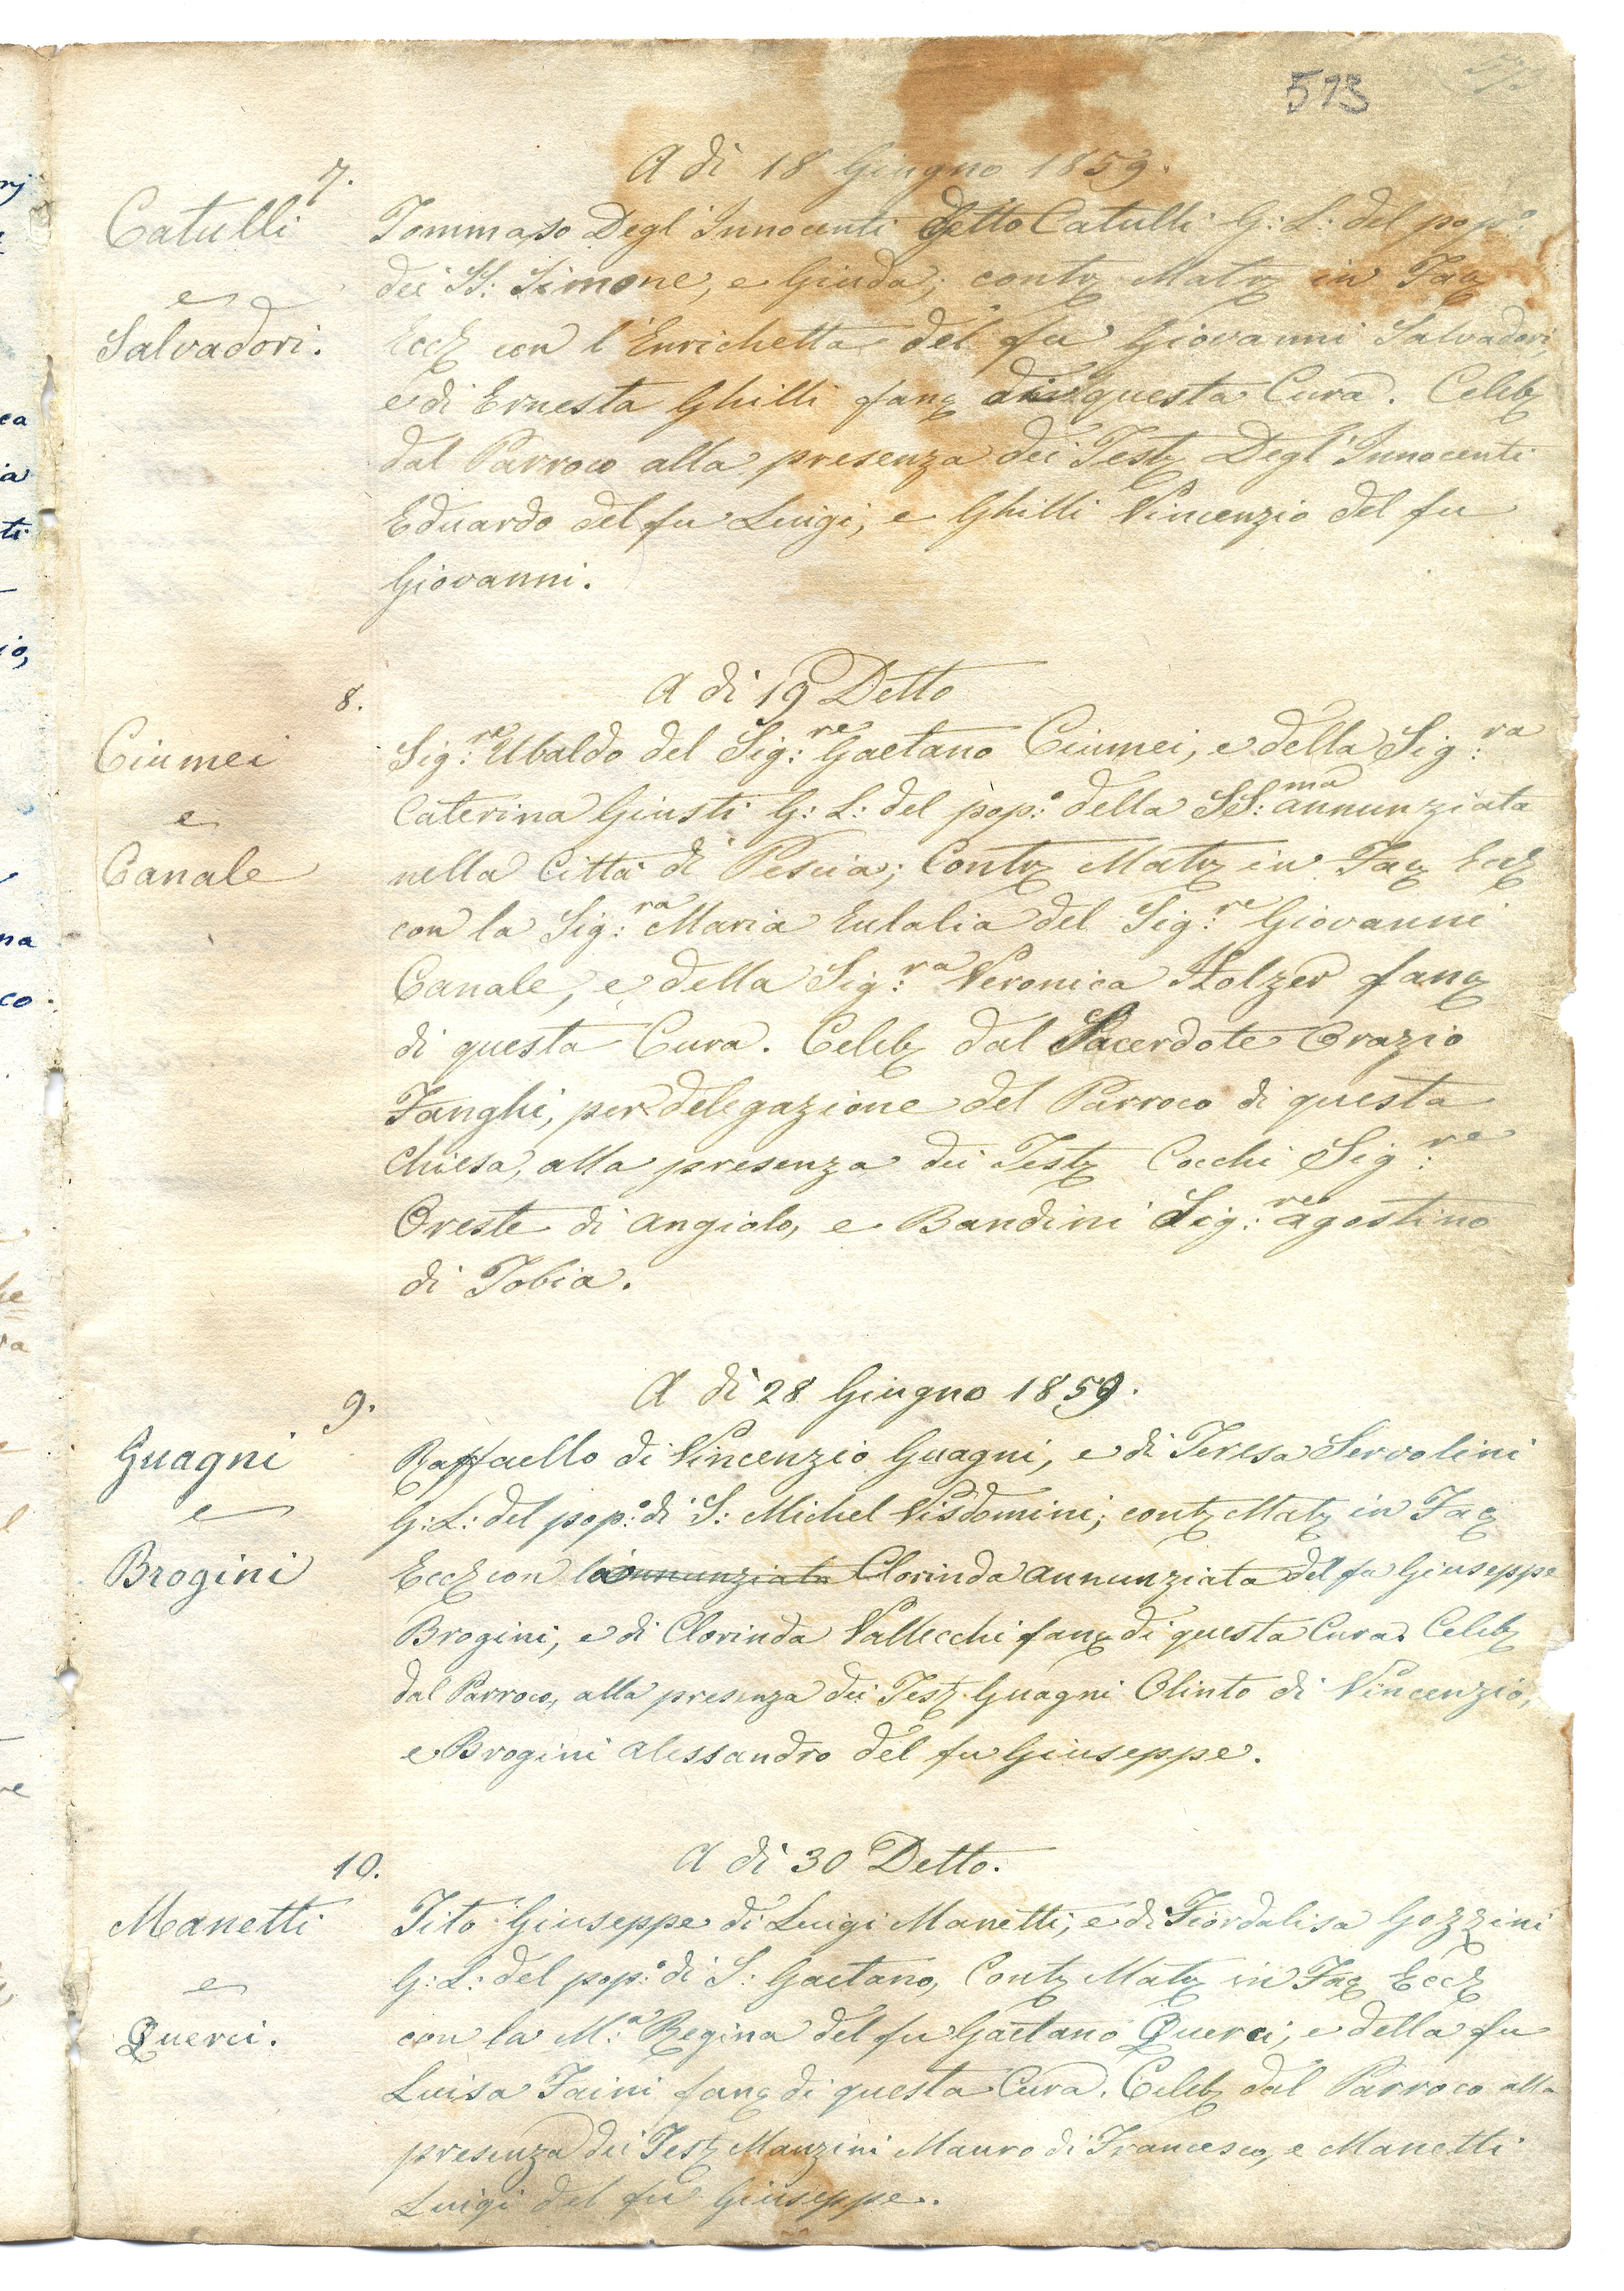 513
7.
A dì 18 Giugno 1859.
Catulli
e
Salvadori.
Tommaso Degl'Innocenti detto Catulli G: L: del pop:°
dei SS: Simone, e Giuda; contz Matz in Faz
Eccz con l'Enrichetta del fu Giovanni Salvadori,
e di Ernesta Ghilli fanz di questa Cura. Celebz
dal Parroco alla presenza dei Testz Degl'Innocenti
Eduardo del fu Luigi, e Ghilli Vincenzio del fu
Giovanni.
8.
A dì 19 Detto
Ciumei
e
Canale
Sig:re Ubaldo del Sig:re Gaetano Ciumei, e della Sig:ra
Caterina Giusti G: L: del pop:° della SS:ma Annunziata
nella Città di Pescia; Contz Matz in Faz Eccz
con la Sig:ra Maria Eulalia del Sig:re Giovanni
Canale, e della Sig:ra Veronica Holzer fanz
di questa Cura. Celebz dal Sacerdote Orazio
Fanghi, per delegazione del Parroco di questa
Chiesa, alla presenza dei Testz Cocchi Sig:re
Oreste di Angiolo, e Bandini Sig:re Agostino
di Tobia.
9.
A dì 28 Giugno 1859.
Guagni
e
Brogini
Raffaello di Vincenzio Guagni, e di Teresa Servolini
G: L: del pop:° di S: Michel Visdomini; contz Matz in Faz
Eccz con la Annunziata Clorinda Annunziata del fu Giuseppe
Brogini, e di Clorinda Vallecchi fanz di questa Cura. Celebz
dal Parroco, alla presenza dei Testz Guagni Olinto di Vincenzio,
e Brogini Alessandro del fu Giuseppe.
10.
A dì 30 Detto.
Manetti
e
Querci.
Tito Giuseppe di Luigi Manetti, e di Fiordalisa Gozzini
G: L: del pop:° di S: Gaetano, Contz Matz in Faz Eccz
con la M:a Regina del fu Gaetano Querci, e della fu
Luisa Faini fanz di questa Cura. Celebz dal Parroco alla
presenza dei Testz Manzini Mauro di Francesco, e Manetti
Luigi del fu Giuseppe.